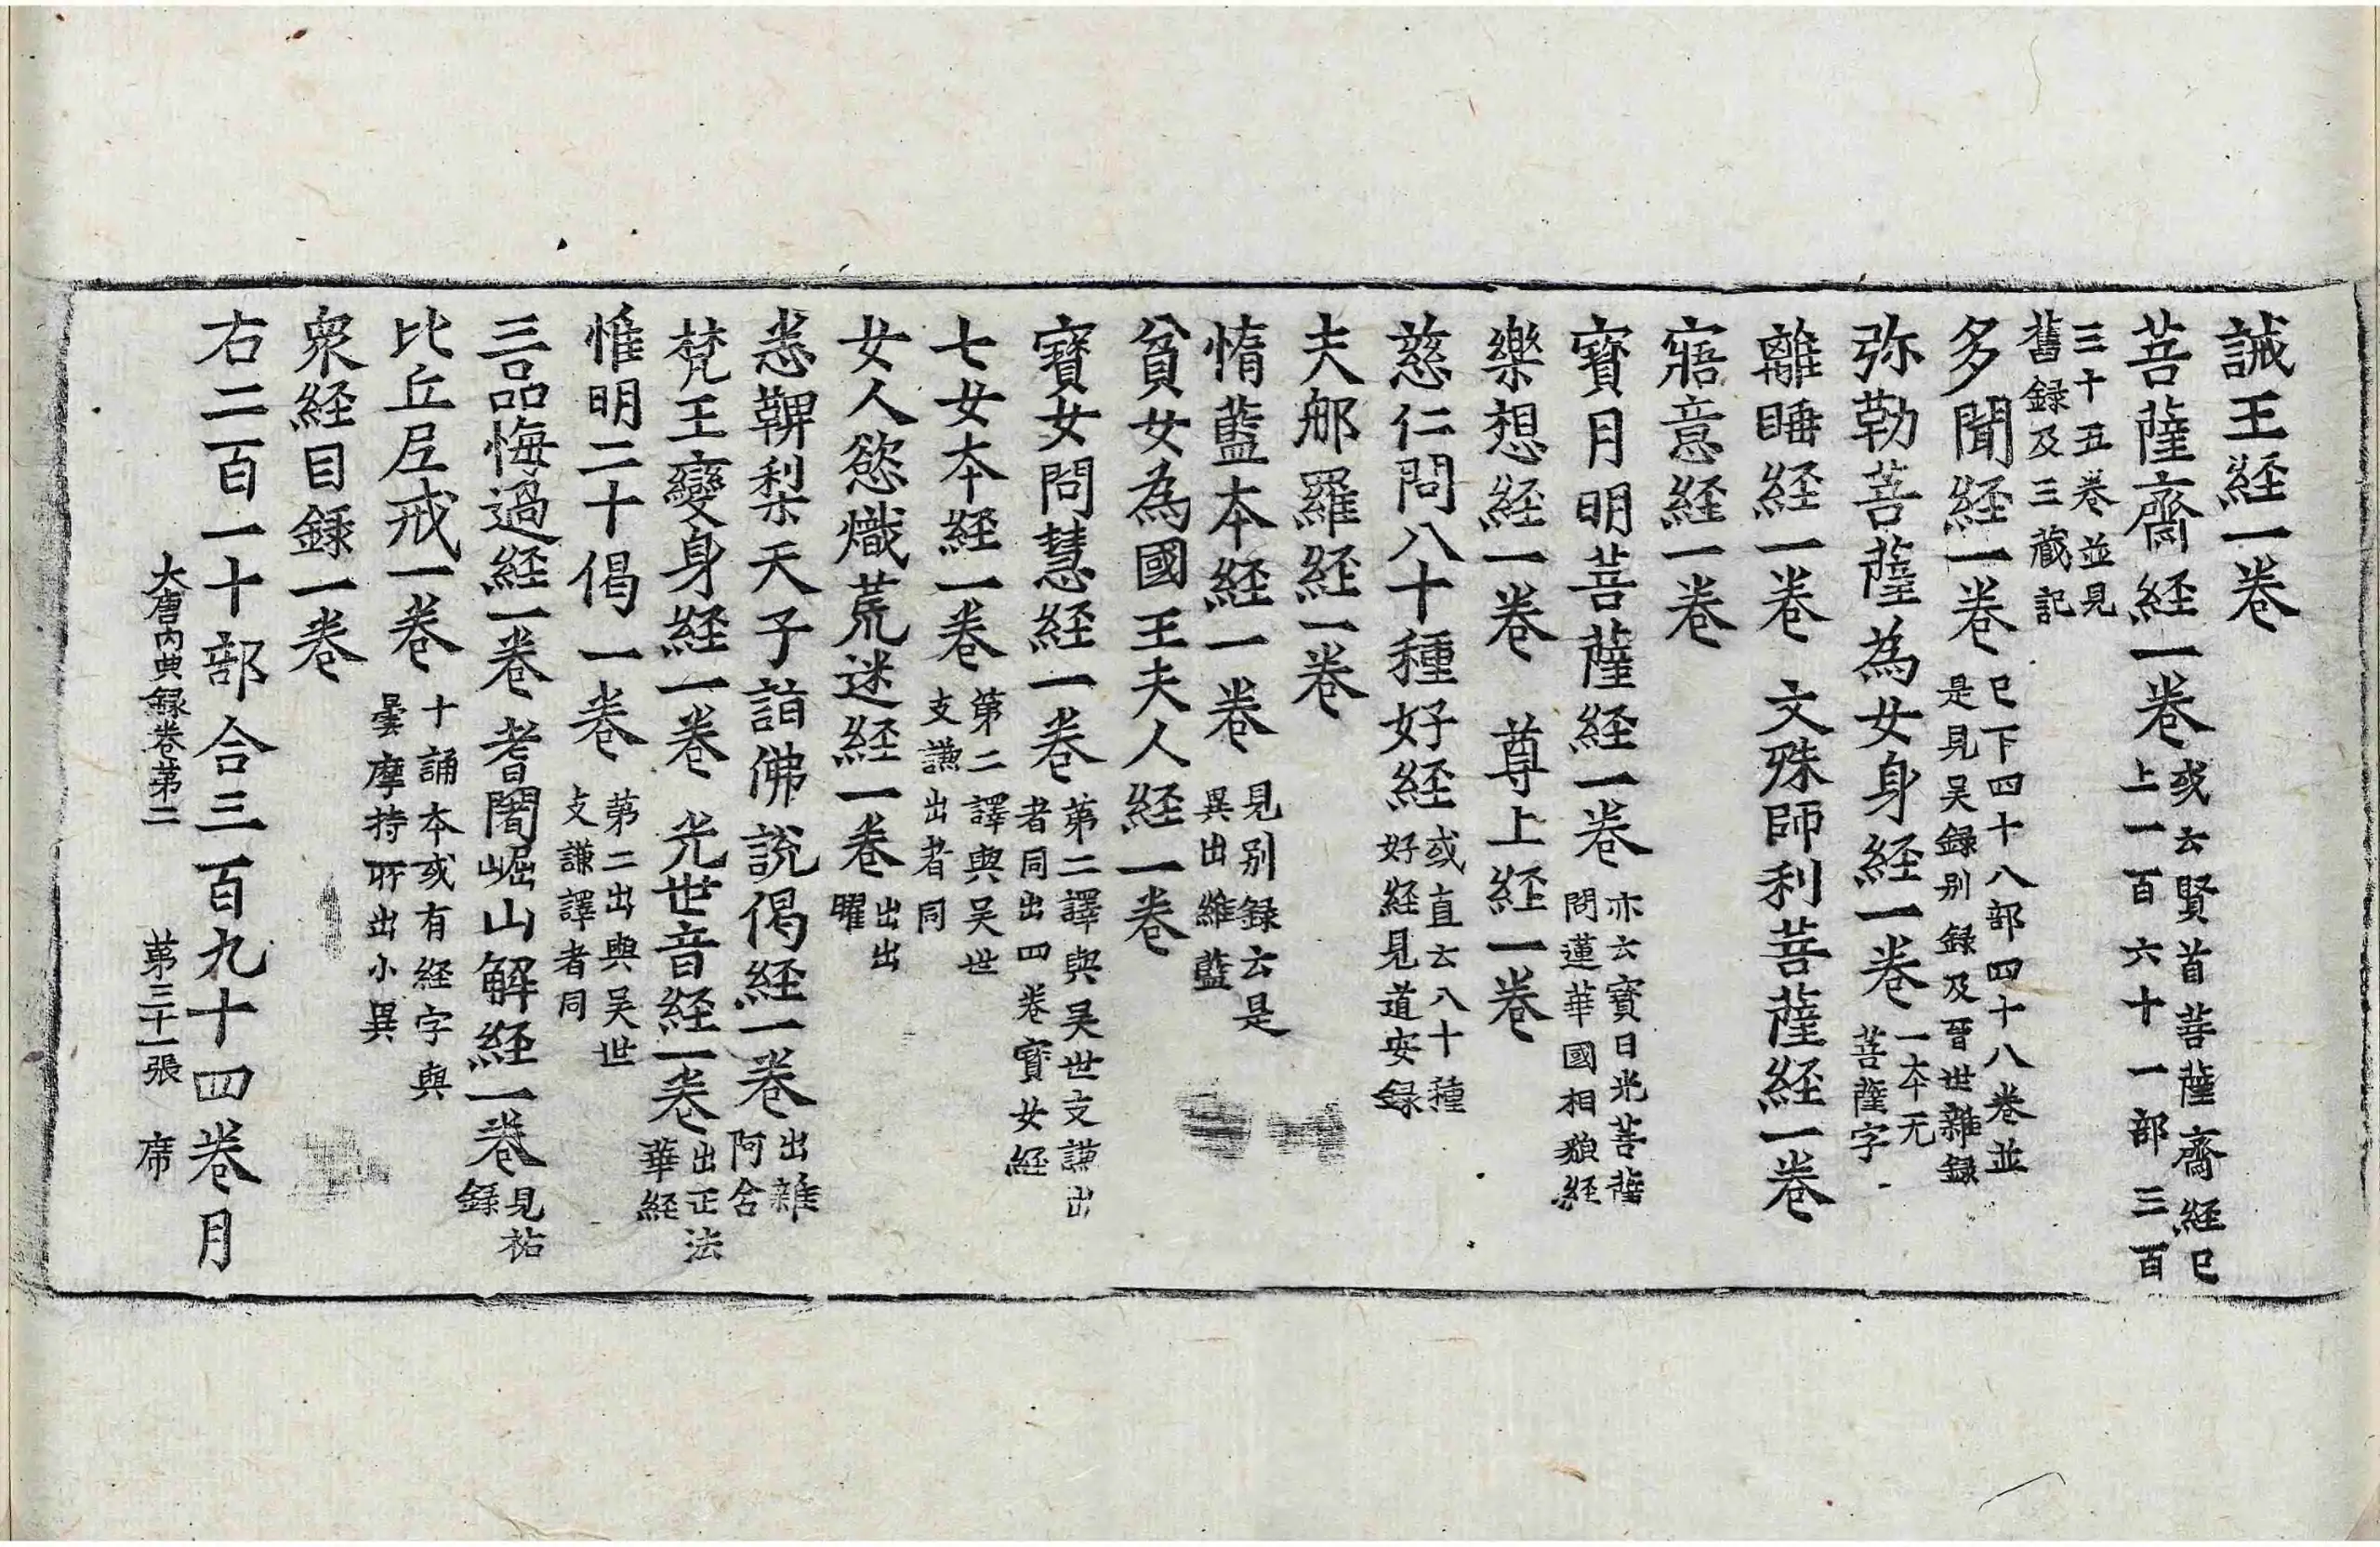 誡王経一卷
菩薩齋経一卷或云賢首菩薩齋経巳上一百六十一部三百
三十五卷並見舊録及三藏記
多聞経一卷巳下四十八部四十八卷並是見吴録别録及晉世雜録
弥勒菩薩為女身経一卷一本无菩薩字
離睡経一卷 文殊師利菩薩経一卷
寤意経一卷
寳月明菩薩経一卷亦云寳日光菩薩問蓮華國相貌経
樂想経一卷 尊上経一卷
慈仁問八十種好経或直云八十種好経見道安録
夫郍羅経一卷
惰藍本経一卷見别録云是異出維藍
貧女為國王夫人経一卷
寳女問慧経一卷第二譯與吴世支謙出者同出四卷寳女経
七女本経一卷第二譯與吴世支謙出者同
女人慾熾荒迷経一卷出出曜
悉鞞梨天子詣佛説偈経一卷出雜阿含
梵王變身経一卷 光世音経一卷出正法華経
惟明二十偈一卷第二出與吴世支謙譯者同
三品悔過経一卷 耆闍崛山解経一卷見祐録
比丘尼戒一卷十誦本或有経字與曇摩持所出小異
衆経目録一卷
右二百一十部合三百九十四卷月
大唐内典録卷第二 第三十一張 席